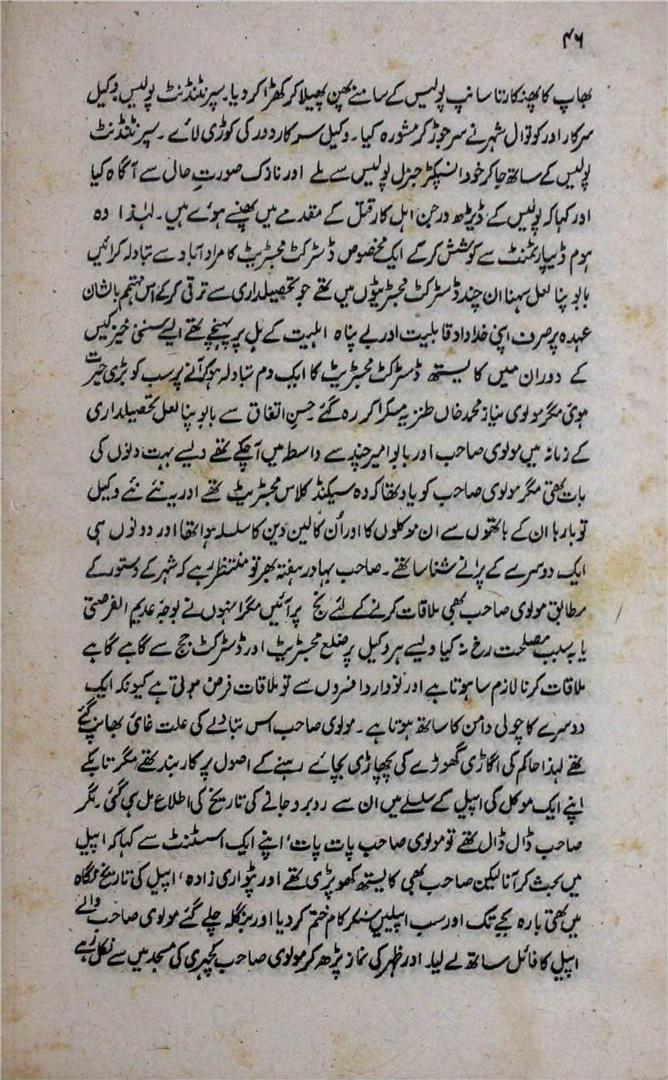 ۴۶
بھاپ کا پھنکارتا سانپ پولیس کے سامنے پھن پھیلا کر کھڑا کر دیا۔ سپرنٹنڈنٹ پولیس، وکیل
سرکار اور کوتوال شہر نے سر جوڑ کر مشورہ کیا۔ وکیل سرکار دور کی کوڑی لائے۔ سپرنٹنڈنٹ
پولیس کے ساتھ جا کر خود انسپکٹر جنرل پولیس سے ملے اور نازک صورتِ حال سے آگاہ کیا
اور کہا کہ پولیس کے ڈیڑھ درجن اہل کار قتل کے مقدمے میں پھنسے ہوئے ہیں۔ لہٰذا وہ
ہوم ڈیپارٹمنٹ سے کوشش کر کے ایک مخصوص ڈسٹرکٹ مجسٹریٹ کا مراد آباد سے تبادلہ کرائیں
بابو پنا لعل سہنا ان چند ڈسٹرکٹ مجسٹریٹوں میں تھے جو تحصیلداری سے ترقی کر کے اس مہتم بالشان
عہدہ پر صرف اپنی خداداد قابلیت اور بے پناہ اہلیت کے بل پر پہنچے تھے ایسے سنسنی خیز کیس
کے دوران میں کایستھ ڈسٹرکٹ مجسٹریٹ کا ایک دم تبادلہ ہو کر آنے پر سب کو بڑی حیرت
ہوئی مگر مولوی نیاز محمد خاں طنزیہ مسکرا کر رہ گئے حسنِ اتفاق سے بابو پنا لعل تحصیلداری
کے زمانہ میں مولوی صاحب اور بابو امیر چند سے واسطہ میں آ چکے تھے ویسے بہت دنوں کی
بات تھی مگر مولوی صاحب کو یاد تھا کہ وہ سیکنڈ کلاس مجسٹریٹ تھے اور یہ نئے نئے وکیل
تو بارہا ان کے ہاتھوں سے ان موکلوں کا اور اُن کا لین دین کا سلسلہ ہوا تھا اور دونوں ہی
ایک دوسرے کے پرانے شناسا تھے۔ صاحب بہادر ہفتہ بھر تو منتظر رہے کہ شہر کے دستور کے
مطابق مولوی صاحب بھی ملاقات کرنے کے لئے پر آئیں مگر انہوں نے بوجہ عدیم الفرصتی
یا بہ سبب مصلحت رخ نہ کیا ویسے ہر وکیل پر ضلع مجسٹریٹ اور ڈسٹرکٹ جج سے گاہے گاہے
ملاقات کرنا لازم سا ہوتا ہے اور نووارد افسروں سے تو ملاقات فرض ہوتی ہے کیونکہ ایک
دوسرے کا چولی دامن کا ساتھ ہوتا ہے۔ مولوی صاحب اس تبادلے کی علت غائی بھانپ گئے
تھے لہذا حاکم کی اگاڑی گھوڑے کی پچھاڑی بچائے رہنے کے اصول پر کاربند تھے مگر تابکے
اپنے ایک موکل کی اپیل کے سلسلے میں ان سے روبرو جانے کی تاریخ کی اطلاع مل ہی گئی۔ مگر
صاحب ڈال ڈال تھے تو مولوی صاحب پات پات، اپنے ایک اسسٹنٹ سے کہا کہ اپیل
میں بحث کر آنا لیکن صاحب بھی کایستھ کھوپڑی تھے اور پٹواری زادہ، اپیل کی تاریخ نگاہ
میں تھی بارہ بجے تک اور سب اپیلیں سنکر کام ختم کر دیا اور بنگلہ چلے گئے مولوی صاحب والے
اپیل کا فائل ساتھ لے لیا۔ اور ظہر کی نماز پڑھ کر مولوی صاحب کچہری کی مسجد میں سے نکل رہے